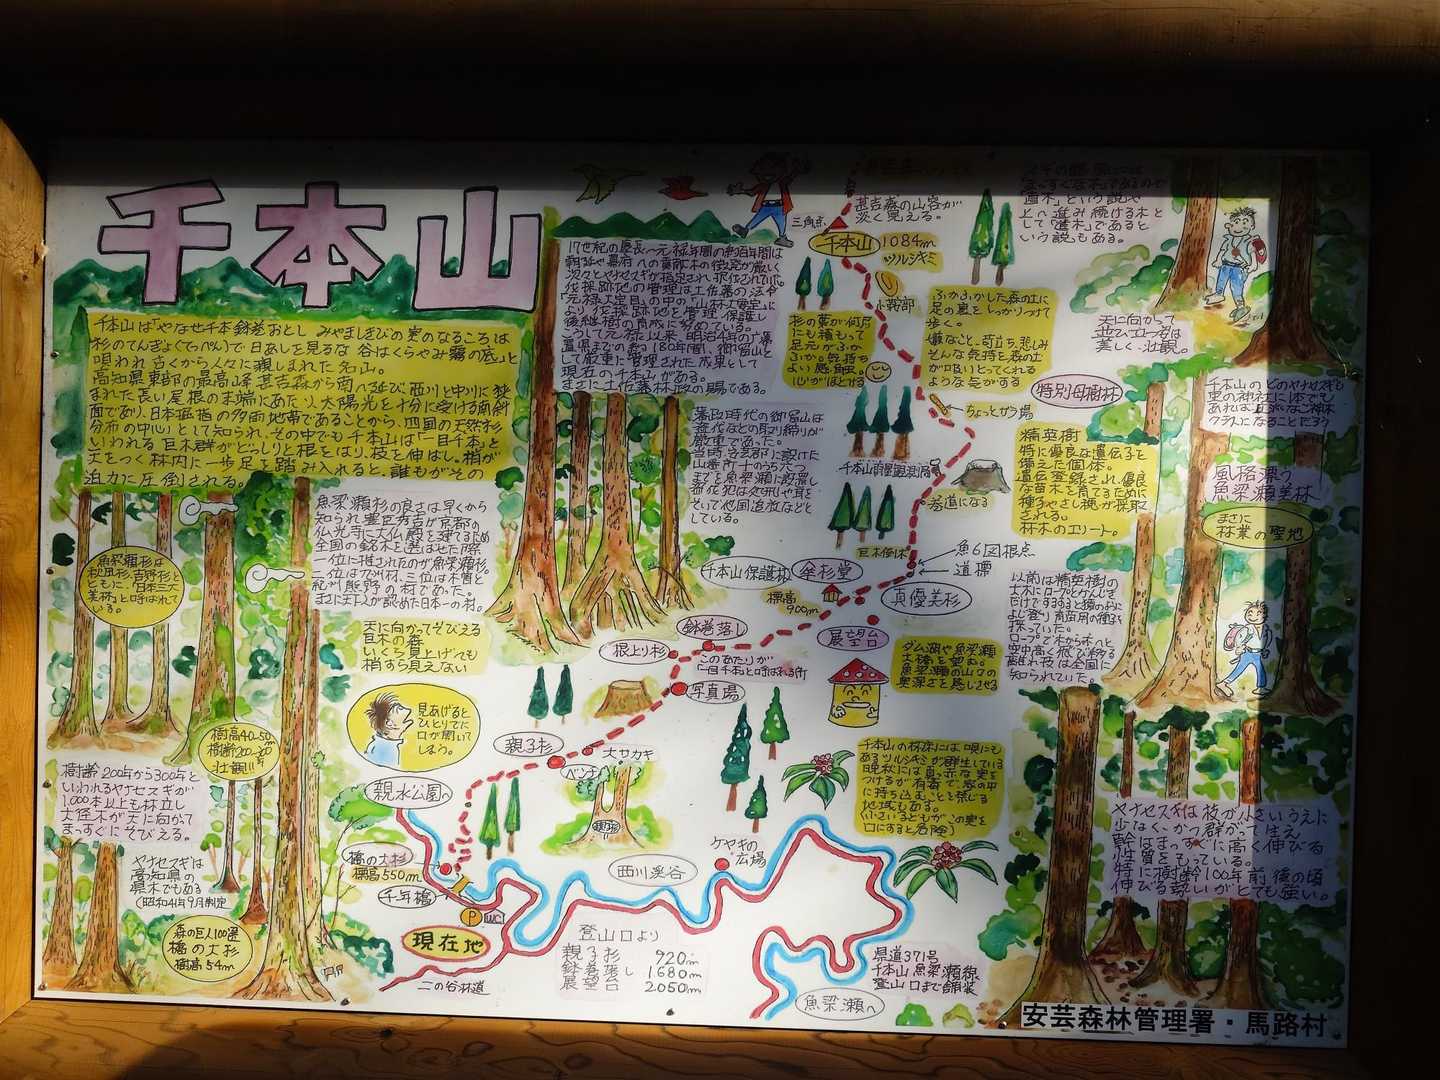 千本山
千本山は「やなせ千本鉢巻おとし みやましきびの実のなるころは
杉のてんぎょ(てっぺん)で日あしを見るな 谷はくらやみ霧の底」と
唄われ古くから人々に親しまれた名山。
高知県東部の最高峰甚吉森から南へ延び西川と中川に狭
まれた長い尾根の末端にあたり、太陽光を十分に受ける南斜
面であり、日本屈指の多雨地帯であることから、四国の天然杉
分布の中心として知られ、その中でも千本山は「一目千本」と
いわれる巨木群がどっしりと根をはり、枝を伸ばし、梢が
天をつく林内に一歩足を踏み入れると、誰もがその
迫力に圧倒される。
17世紀の慶長~元禄年間の約百年間は
朝廷や幕府への献木の徴発が厳しく
次々とヤナセスギが指定され
伐採跡地の管理は土佐藩の法令
「元禄大定目」の中の「山林大定」に
より伐採跡地を管理、保護し
後継樹の育成に努めている。
こうして元禄以来、明治4年の廃藩
置県までの約180年間、御留山と
して厳重に管理された成果として
現在の千本山がある。
まさに土佐藩林政の賜である。
藩政時代の御留山は
盗伐などの取り締りが
厳重であった。
している。
三角点
甚吉森の山容が
淡く見える。
千本山
1084m
ツルシキミ
小鞍部
杉の葉が何層
にも積もって
足元がふか
ふか。気持ち
よい感触。
心がほどける
ふかふかした森の土に
足の裏をしっかりつけて
歩く。
嫌なこと、苛立ち、悲しみ
そんな気持を森の土
が吸いとってくれる
ような気がする
ちょっとザラ場
特別母樹林
まっすぐな木」であるので
「直木」という説や
上へ進み続ける木と
して「進木」であると
いう説もある。
天に向かって
並びエリアは
美しく・壮観。
精英樹
特に優良な遺伝子を
備えた個体。
遺伝登録され、優良
な苗木を育てるために
種子やさし穂が採取
される。
林木のエリート。
千本山のどのヤナセスギも
里の神社に一体でも
あれば立派なご神木
風格漂う
魚梁瀬美林
まさに
林業の聖地
以前は精英樹の
ロープで木から木へと
空中高く飛び移る
離れ技は全国に
知られていた。
魚梁瀬杉の良さは早くから
知られ豊臣秀吉が京都の
仏光寺に大仏殿を建てるため
全国の銘木を選ばせた際
一位に推されたのが魚梁瀬杉。
まさに天下人が認めた日本一の村。
魚梁瀬杉は
秋田杉、吉野杉と
ともに「日本三大
美林」と呼ばれて
いる。
天に向かってそびえる
巨木の森
いくら見上げても
梢すら見えない
見あげると
ひとりでに
口が開いて
しまう。
樹高40~50m
樹齢200~300年
壮観!!
樹齢200年から300年と
いわれるヤナセスギが
1,000本以上も林立し
大径木が天に向かて
まっすぐにそびえる。
ヤナセスギは
高知県の
県木でもある
(昭和41年9月制定
森の巨人100選
橋の大杉
樹高54m
芳道になる
巨木倒木
魚6図根点
道標
千本山保護林
傘杉堂
標高
900m
真優美杉
展望台
鉢巻落し
根上り杉
このあたりが
「一目千本」と呼ばれる所
写真場
ダム湖や魚梁瀬
大橋を望む。
魚梁瀬の山々の
奥深さを感じさせる
親子杉
大サカキ
ベンチ
親水公園へ
橋の大杉
標高550m
千年橋
P
WC
現在地
二の谷林道
西川渓谷
ケヤキの
広場
千本山の林床には唄にも
あるツルシキミが群生している
晩秋には真っ赤な実を
つけるが有毒で、家の中
に持ち込むことを禁じる
地域もある。
(小さい子どもがこの実を
口にすると危険)
ヤナセスギは枝が小さいうえに
少なく、かつ群がって生え
幹はまっすぐに高く伸びる
性質をもっている。
特に樹齢100年前後の頃
伸びる勢いがとても強い。
登山口より
親子杉 920m
鉢巻落し 1.680m
展望台 2.050m
県道371号
千本山魚梁瀬線
登山口まで舗装
魚梁瀬へ
安芸森林管理署・馬路村